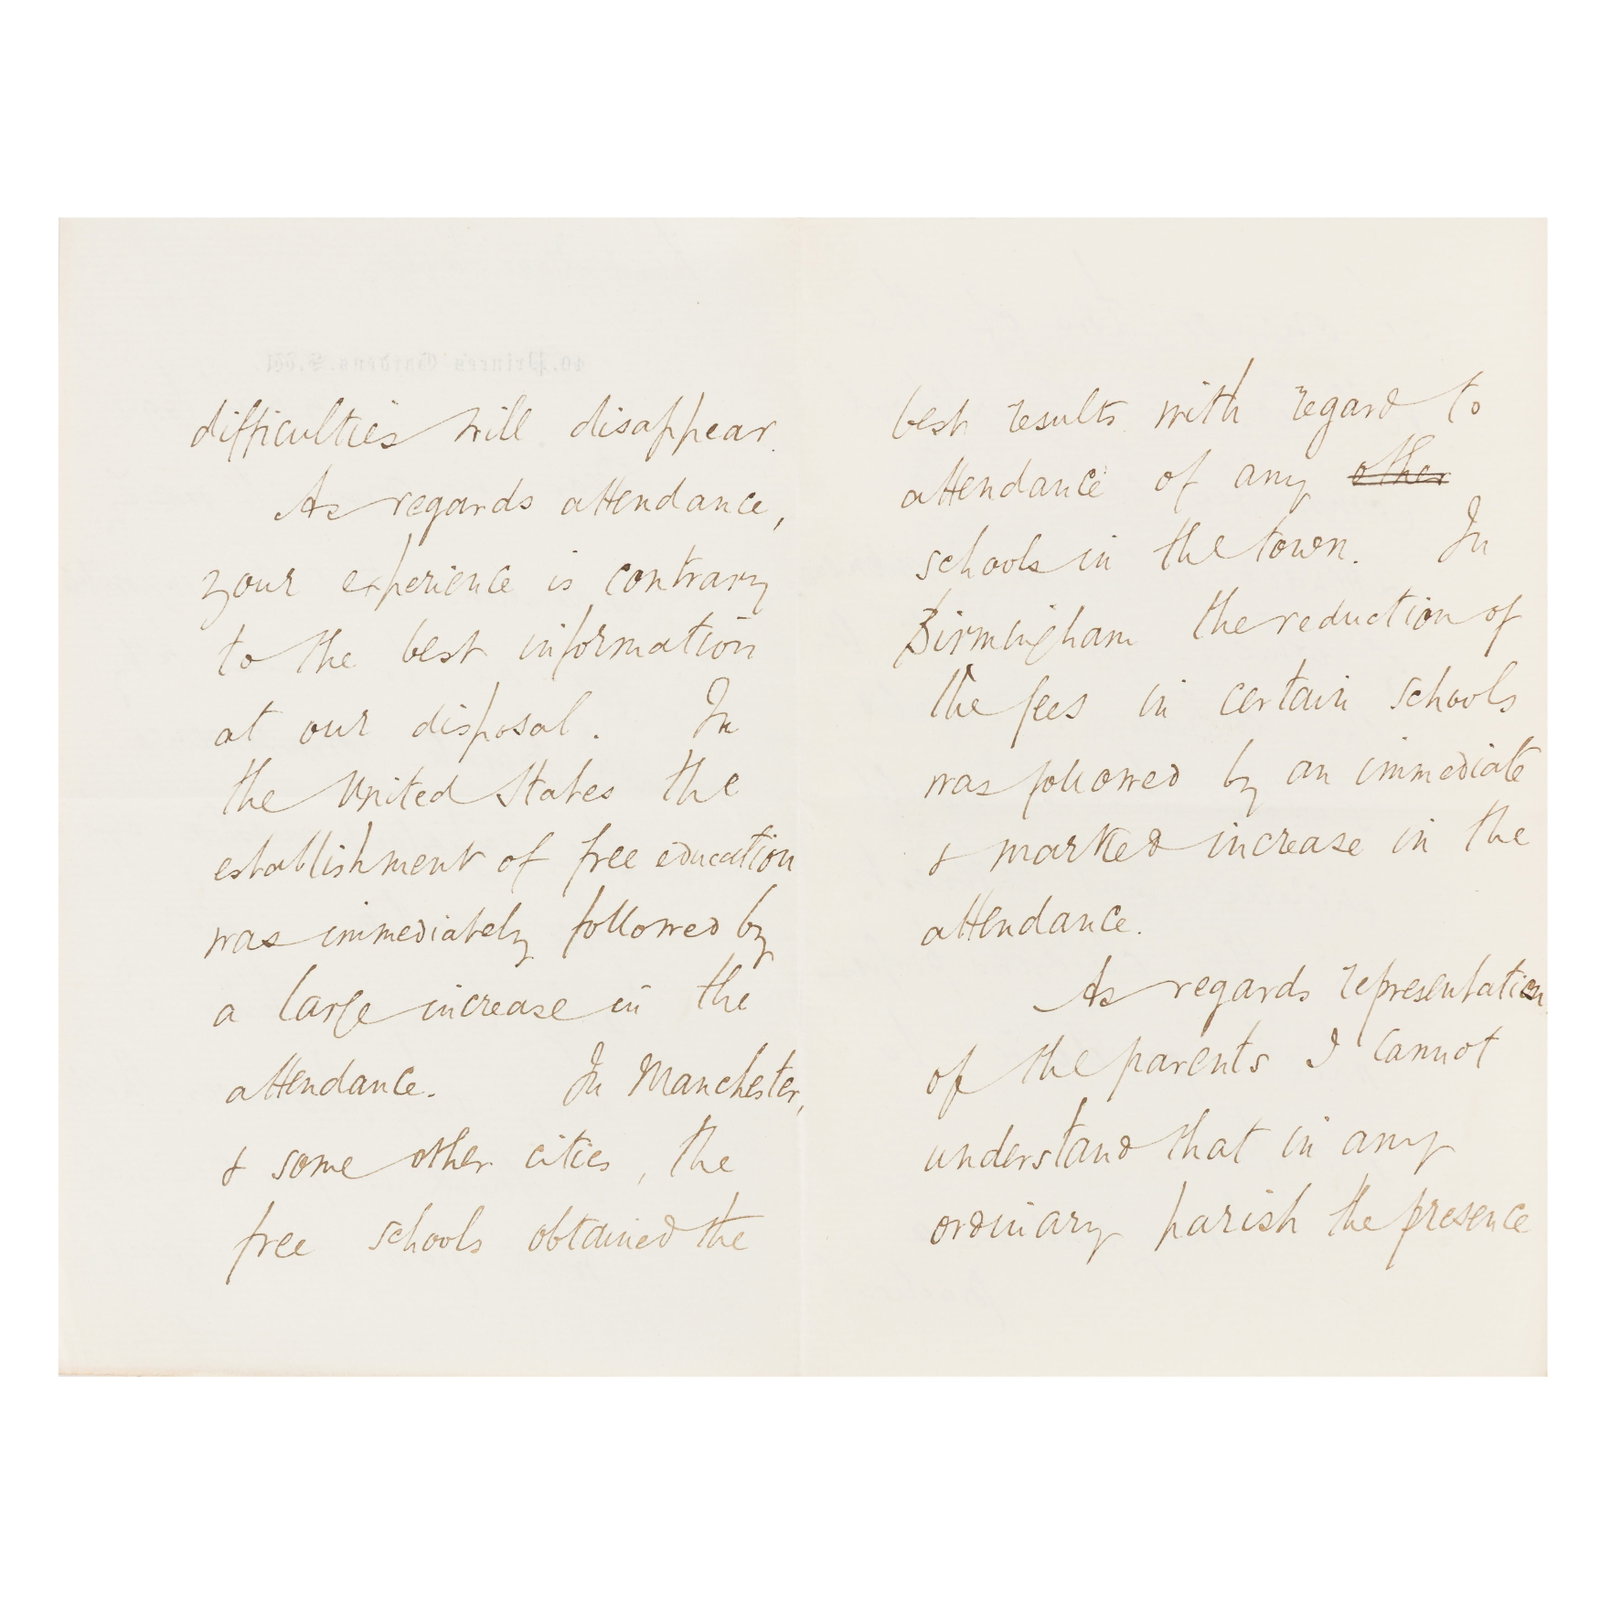 difficulties will disappear.
As regards attendance,
your experience is contrary
to the best information
at our disposal. In
the United States the
establishment of free education
was immediately followed by
a large increase in the
attendance. In Manchester,
& some other cities, the
free schools obtained the
best results with regard to
attendance of any other
schools in the town. In
Birmingham the reduction of
the fees in certain schools
was followed by an immediate
& marked increase in the
attendance.
As regards representation
of the parents I cannot
understand that in any
ordinary parish the presence
40, Princes Gardens, S.W.